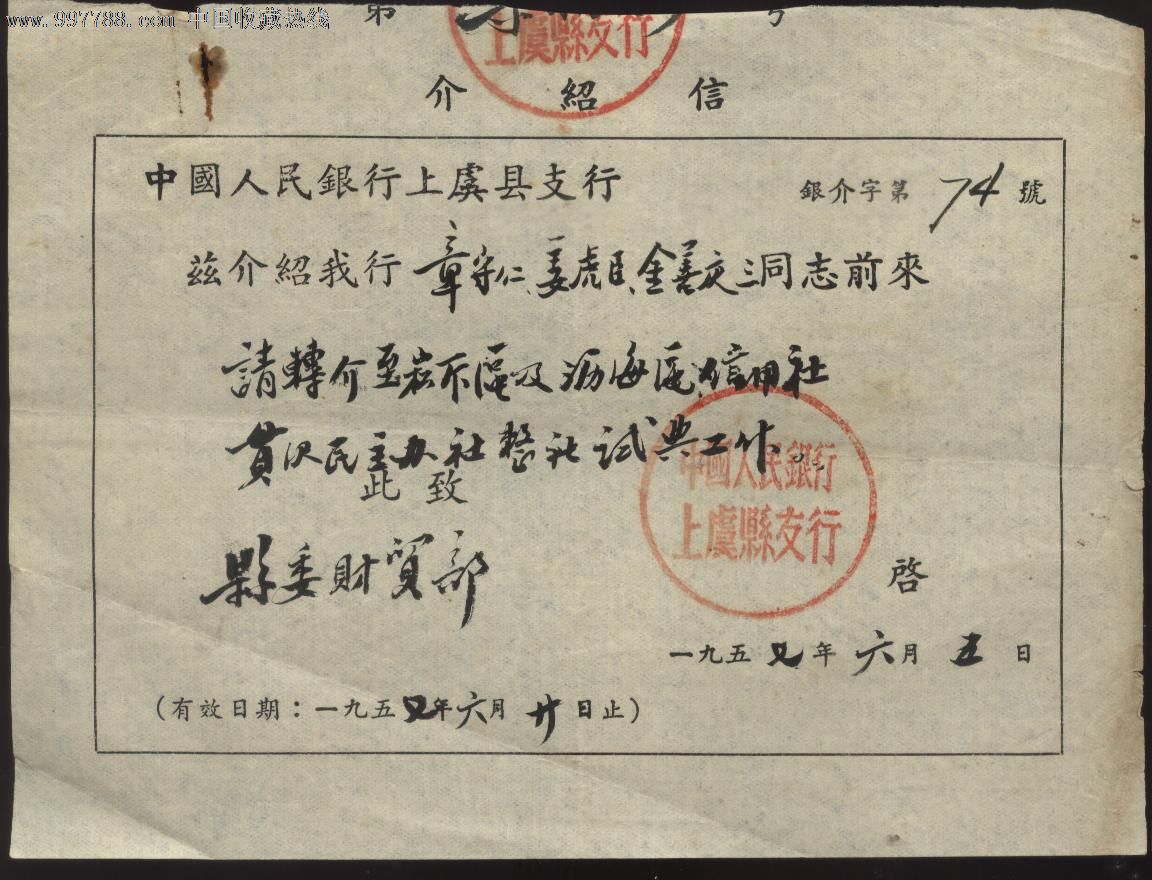 www.997788.com 中国收藏热线
第 号
上虞縣支行
介紹信
中國人民銀行上虞县支行
銀介字第 74 號
兹介紹我行章守仁、姜虎臣、金善庆三同志前來
請轉介至崧下區及沥海區信用社
貫沢民主办社整社試典工作。
此致
中國人民銀行
上虞縣支行
縣委財貿部
啓
一九五 年六月五日
(有效日期：一九五 年六月廿日止)